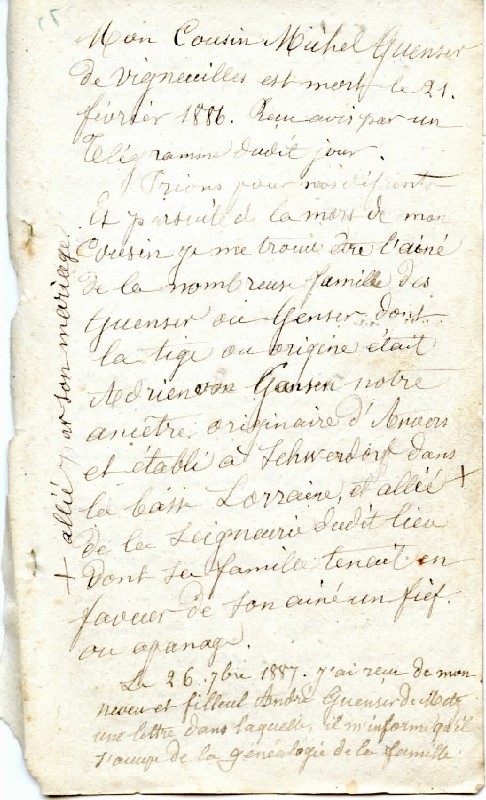 Mon Cousin Michel Guenser
de Vigneulles est mort le 21.
février 1886. Reçu avis par un
Télégramme dudit jour.
Prions pour nos défunts
Et par suite de la mort de mon
Cousin je me trouve être l'ainé
de la nombreuse famille des
Guenser ou Genser, dont
la tige ou origine était
Adrien von Gansen notre
ancêtre, originaire d'Anvers
et établi à Schwerdorf dans
la basse Lorraine, et allié +
de la Seigneurie dudit lieu
Dont sa famille tenait en
faveur de son ainé un fief.
ou apanage.
Le 26. 7bre 1887. j'ai reçu de mon
neveu et filleul André Guenser de Metz
une lettre dans laquelle, il m'informe qu'il
s'occupe de la généalogie de la famille.
+ allié par son mariage.